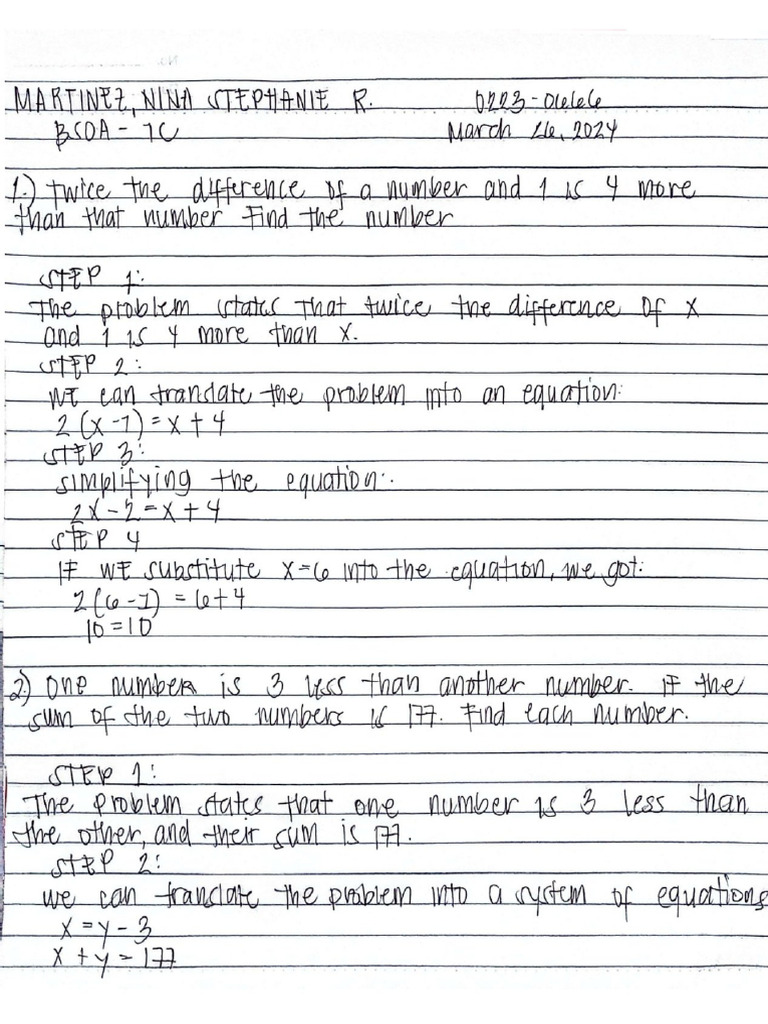 MARTINEZ, NINA STEPHANIE R. 0223-0666
BSOA - 1C March 26, 2024
1.) twice the difference of a number and 1 is 4 more
than that number Find the number
STEP 1:
The problem states that twice the difference of x
and 1 is 4 more than x.
STEP 2:
WE can translate the problem into an equation:
2(x-1)=x+4
STEP 3:
simplifying the equation:
2x-2=x+4
STEP 4
IF WE substitute x=6 into the equation, we got:
2(6-1)=6+4
10=10
2.) One number is 3 less than another number. IF the
sum of the two numbers is 177. Find each number.
STEP 1:
The problem states that one number is 3 less than
the other, and their sum is 177.
STEP 2:
we can translate the problem into a system of equations
x=y-3
x+y=177